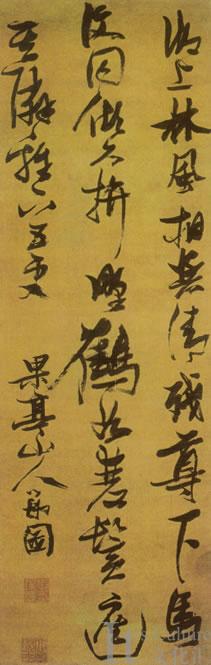 湖上林風相與清殘尊下馬
復同傾久拚野鶴如鬢遮
莫隣雞下五更
果亭山人瑞圖